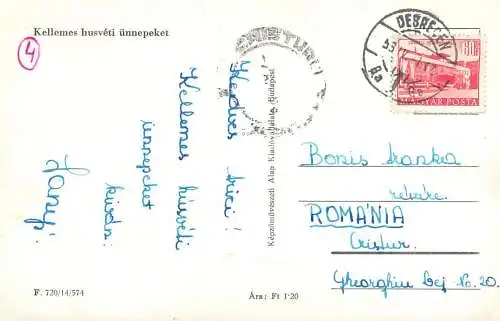 Kellemes husvéti ünnepeket
4
Kedves Irici!
Kellemes húsvéti
ünnepeket
kíván:
Képzőművészeti Alap Kiadóvállalata, Budapest
DEBRECEN
MAGYAR POSTA
Boris Iranka
ROMÁNIA
Cristur.
Gheorghiu Dej No. 20.
F. 720/14/574
Ára: Ft 1·20